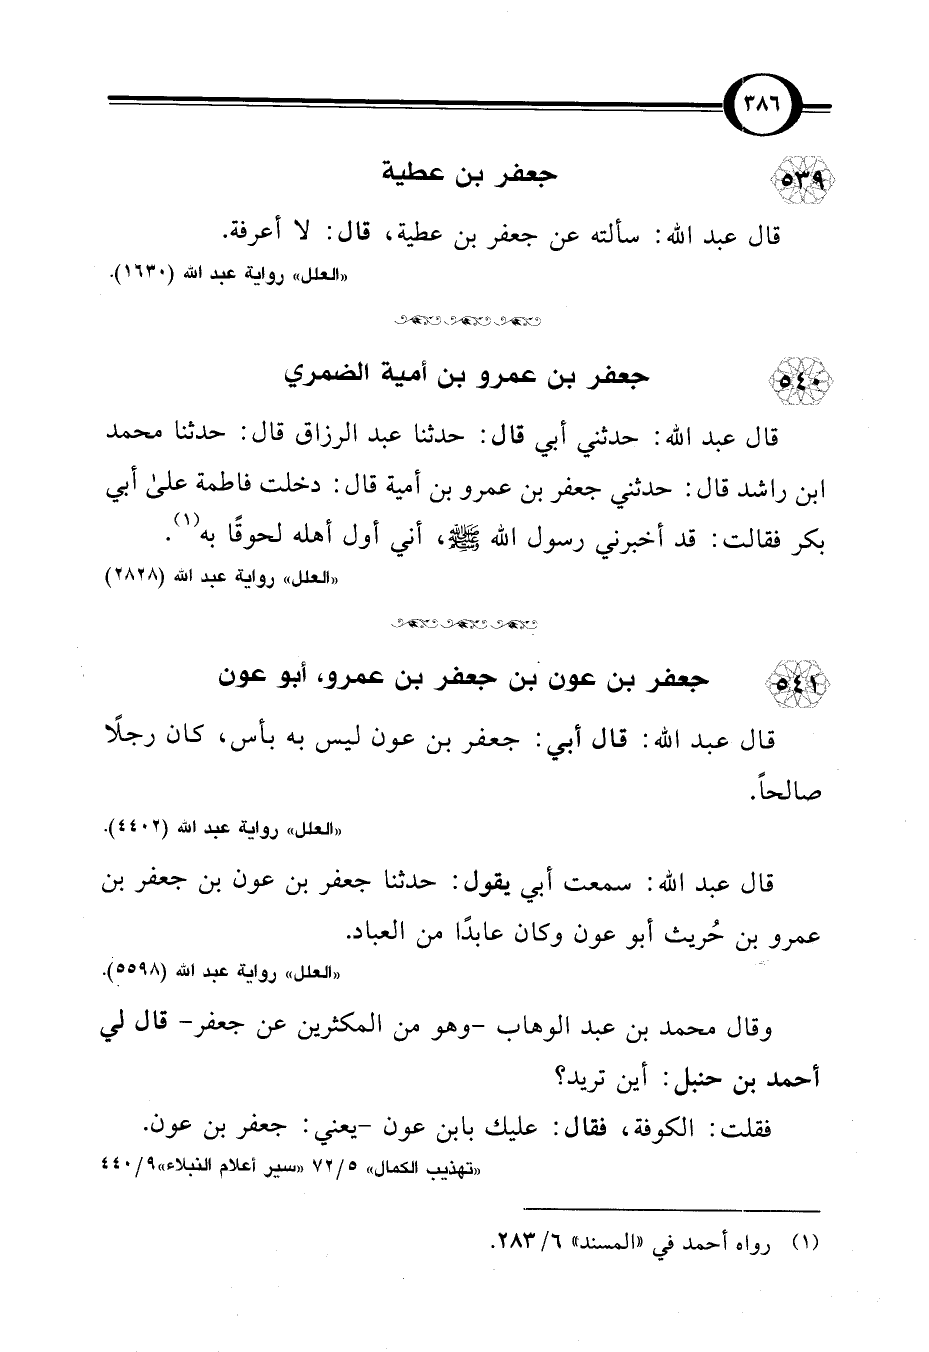 ٣٨٦
٥٣٩ جعفر بن عطية
قال عبد الله: سألته عن جعفر بن عطية، قال: لا أعرفة.
«العلل» رواية عبد الله (١٦٣٠).
٥٤٠ جعفر بن عمرو بن أمية الضمري
قال عبد الله: حدثني أبي قال: حدثنا عبد الرزاق قال: حدثنا محمد
ابن راشد قال: حدثني جعفر بن عمرو بن أمية قال: دخلت فاطمة علىٰ أبي
بكر فقالت: قد أخبرني رسول الله ﷺ، أني أول أهله لحوقًا به(١).
«العلل» رواية عبد الله (٢٨٢٨)
٥٤١ جعفر بن عون بن جعفر بن عمرو، أبو عون
قال عبد الله: قال أبي: جعفر بن عون ليس به بأس، كان رجلًا
صالحاً.
«العلل» رواية عبد الله (٤٤٠٢).
قال عبد الله: سمعت أبي يقول: حدثنا جعفر بن عون بن جعفر بن
عمرو بن حُريث أبو عون وكان عابدًا من العباد.
«العلل» رواية عبد الله (٥٥٩٨).
وقال محمد بن عبد الوهاب -وهو من المكثرين عن جعفر- قال لي
أحمد بن حنبل: أين تريد؟
فقلت: الكوفة، فقال: عليك بابن عون -يعني: جعفر بن عون.
«تهذيب الكمال» ٧٢/٥ «سير أعلام النبلاء» ٤٤٠/٩
(١) رواه أحمد في «المسند» ٢٨٣/٦.